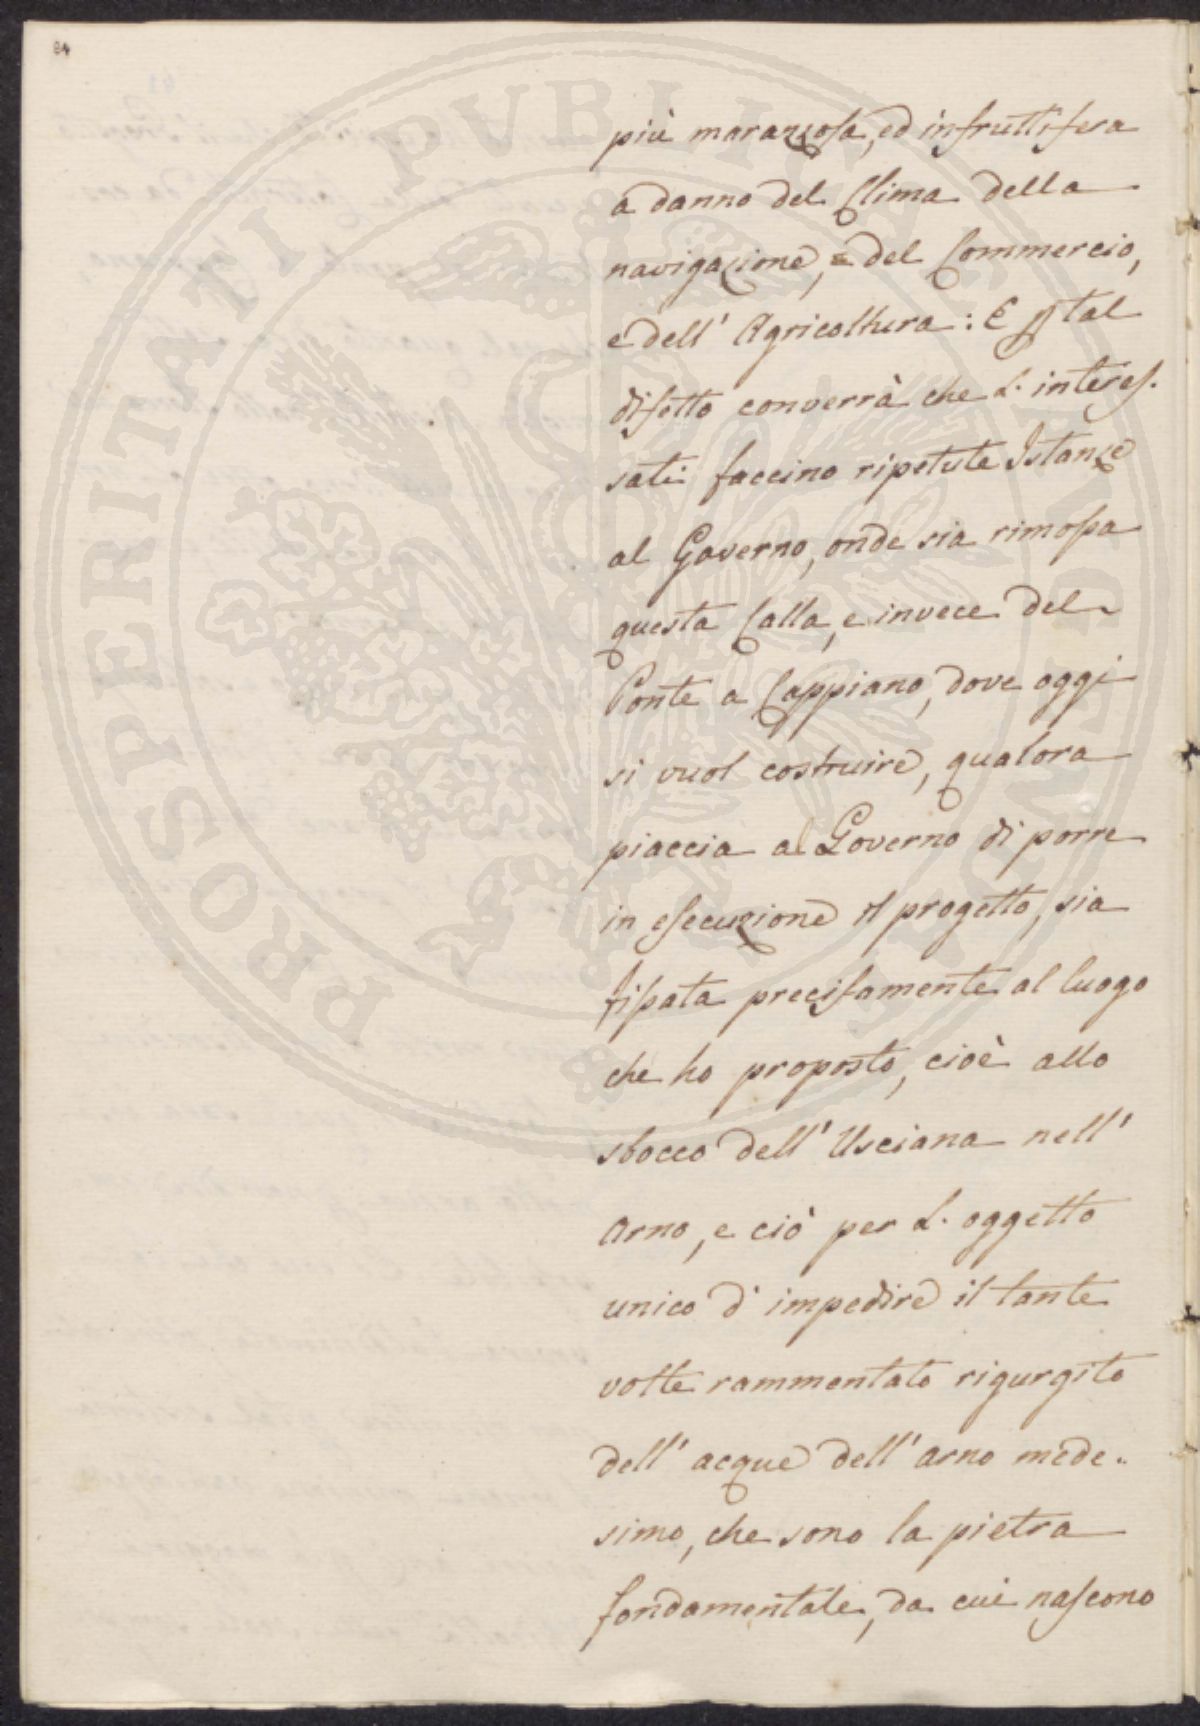 84
PROSPERITATI PUBLICAE AUGENDAE
più maranzosa, ed infruttifera
a danno del Clima della
navigazione, e del Commercio,
e dell' Agricoltura: E p tal
difetto converrà che l. interes-
sati faccino ripetute Istanze
al Governo, onde sia rimossa
questa Calla, e invece del
Ponte a Cappiano, dove oggi
si vuol costruire, qualora
piaccia al Governo di porre
in esecuzione il progetto, sia
fissata precisamente al luogo
che ho proposto, cioè allo
sbocco dell' Usciana nell'
Arno, e ciò per l. oggetto
unico d' impedire il tante
volte rammentato rigurgito
dell' acque dell' arno mede-
simo, che sono la pietra
fondamentale, da cui nascono